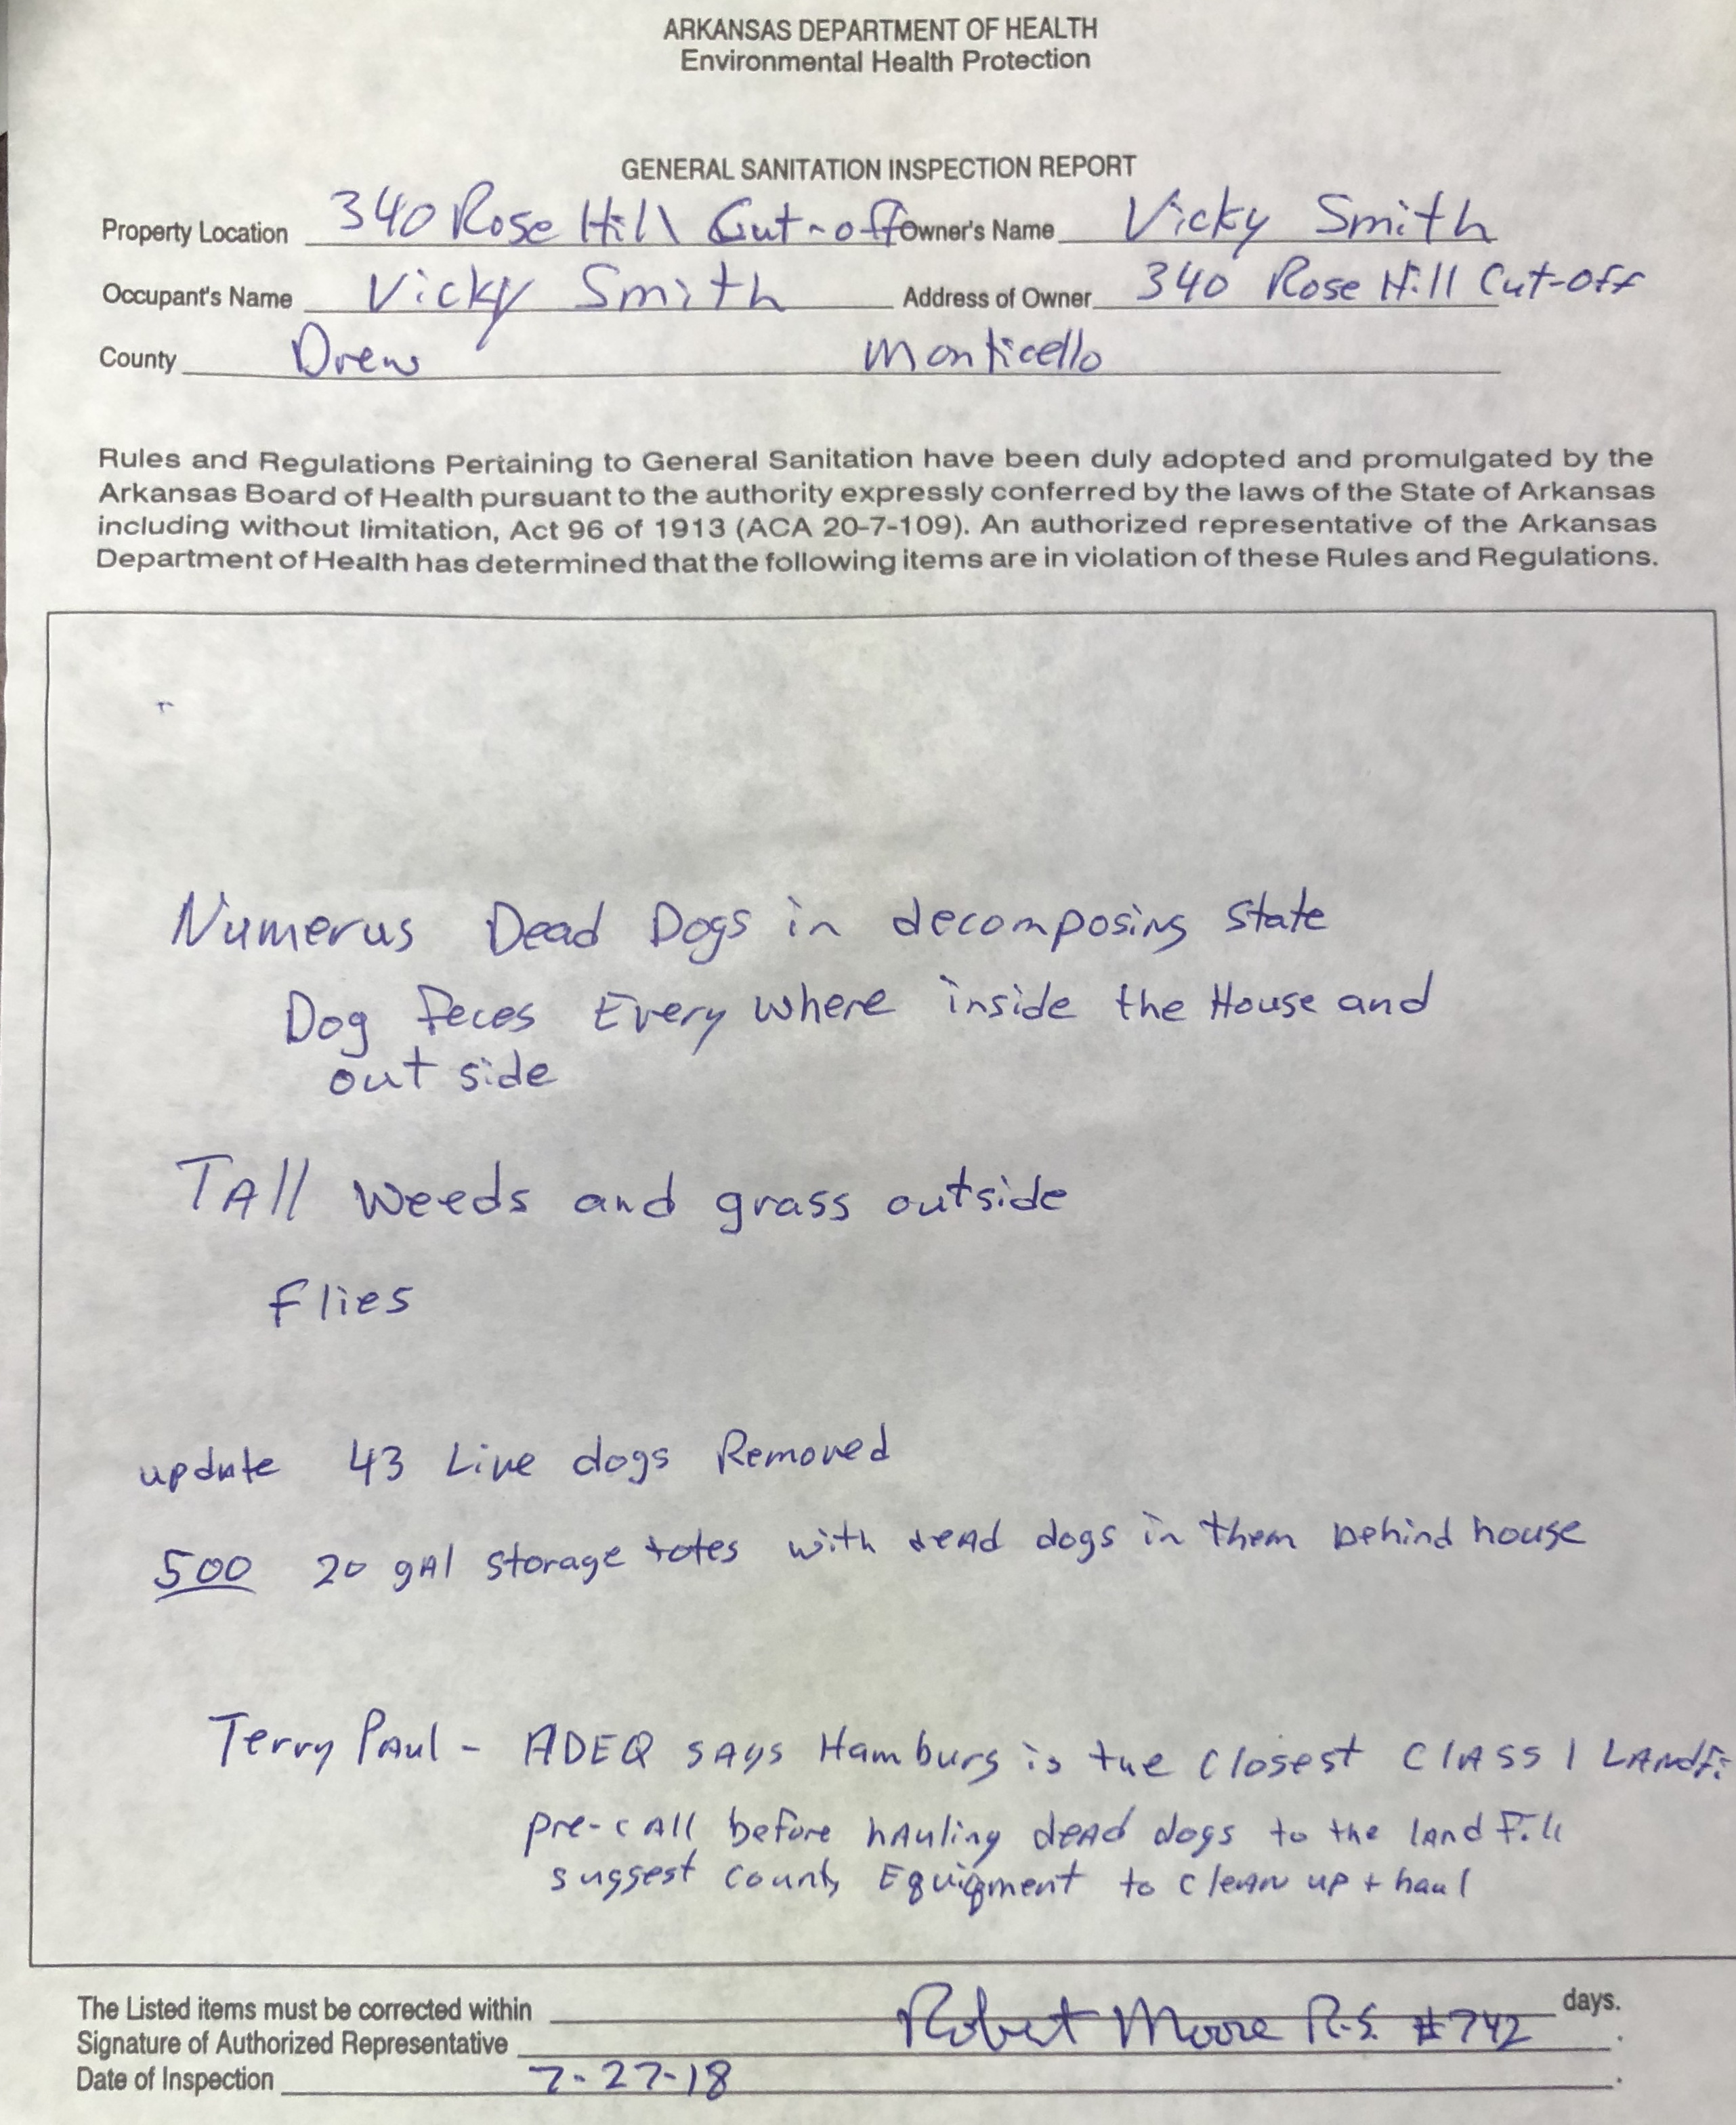 ARKANSAS DEPARTMENT OF HEALTH
Environmental Health Protection
GENERAL SANITATION INSPECTION REPORT
Property Location 340 Rose Hill Cut-off Owner's Name Vicky Smith
Occupant's Name Vicky Smith Address of Owner 340 Rose Hill Cut-off
County Drew Monticello
Rules and Regulations Pertaining to General Sanitation have been duly adopted and promulgated by the
Arkansas Board of Health pursuant to the authority expressly conferred by the laws of the State of Arkansas
including without limitation, Act 96 of 1913 (ACA 20-7-109). An authorized representative of the Arkansas
Department of Health has determined that the following items are in violation of these Rules and Regulations.
Numerus Dead Dogs in decomposing state
Dog feces Every where inside the House and
out side
TAll weeds and grass outside
flies
update 43 Live dogs Removed
500 20 gAl storage totes with deAd dogs in them behind house
Terry PAul - ADEQ sAys Hamburg is the Closest ClASS 1 LAndfi
pre-cAll before hAuling deAd dogs to the lAnd Fill
suggest County Equipment to cleAn up + haul
The Listed items must be corrected within days.
Signature of Authorized Representative Robert Moore R.S. #742
Date of Inspection 7-27-18